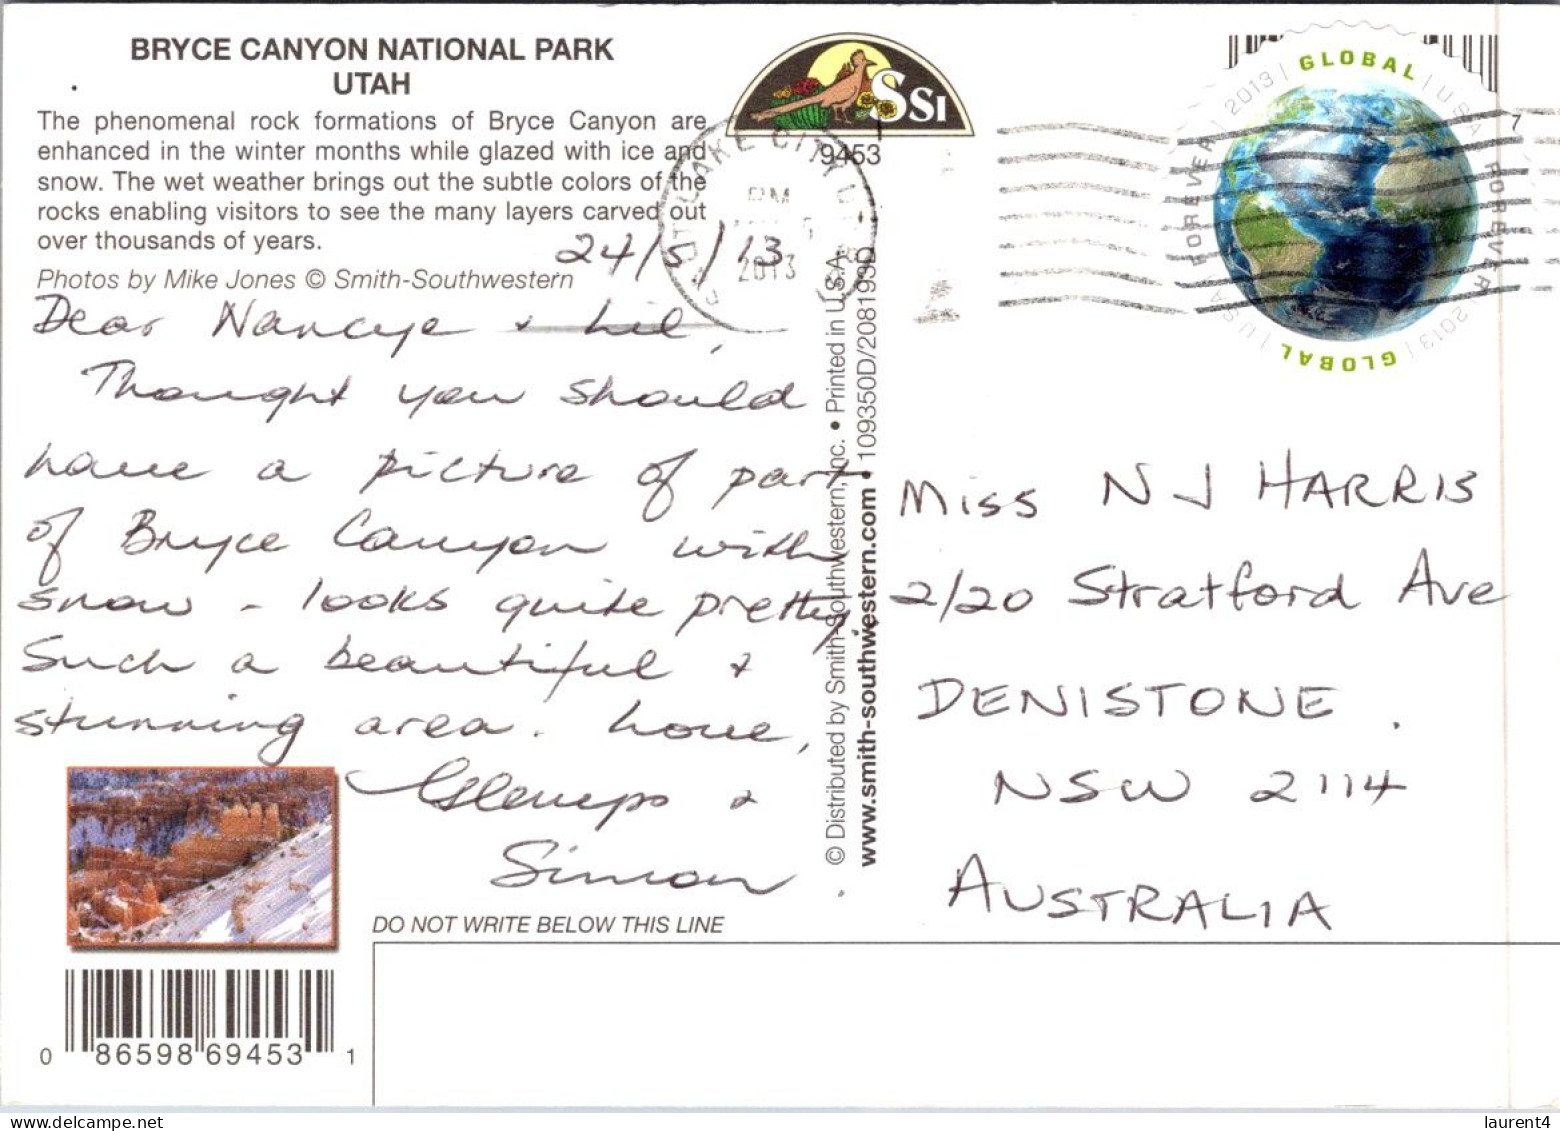 BRYCE CANYON NATIONAL PARK
UTAH
The phenomenal rock formations of Bryce Canyon are
enhanced in the winter months while glazed with ice and
snow. The wet weather brings out the subtle colors of the
rocks enabling visitors to see the many layers carved out
over thousands of years.
Photos by Mike Jones © Smith-Southwestern
24/5/13
Dear Nancye + Lil,
Thought you should
have a picture of part
of Bryce Canyon with
snow - looks quite pretty.
Such a beautiful +
stunning area. Love,
Glenys +
Simon.
DO NOT WRITE BELOW THIS LINE
0 86598 69453 1
SSI
9453
LAKE CITY UT
PM
2013
© Distributed by Smith-Southwestern, Inc. • Printed in U.S.A.
www.smith-southwestern.com • 109350D/208193D
GLOBAL | USA FOREVER 2013 |
GLOBAL | USA FOREVER | 2013 |
7
Miss N J HARRIS
2/20 Stratford Ave
DENISTONE.
NSW 2114
AUSTRALIA
www.delcampe.net
laurent4